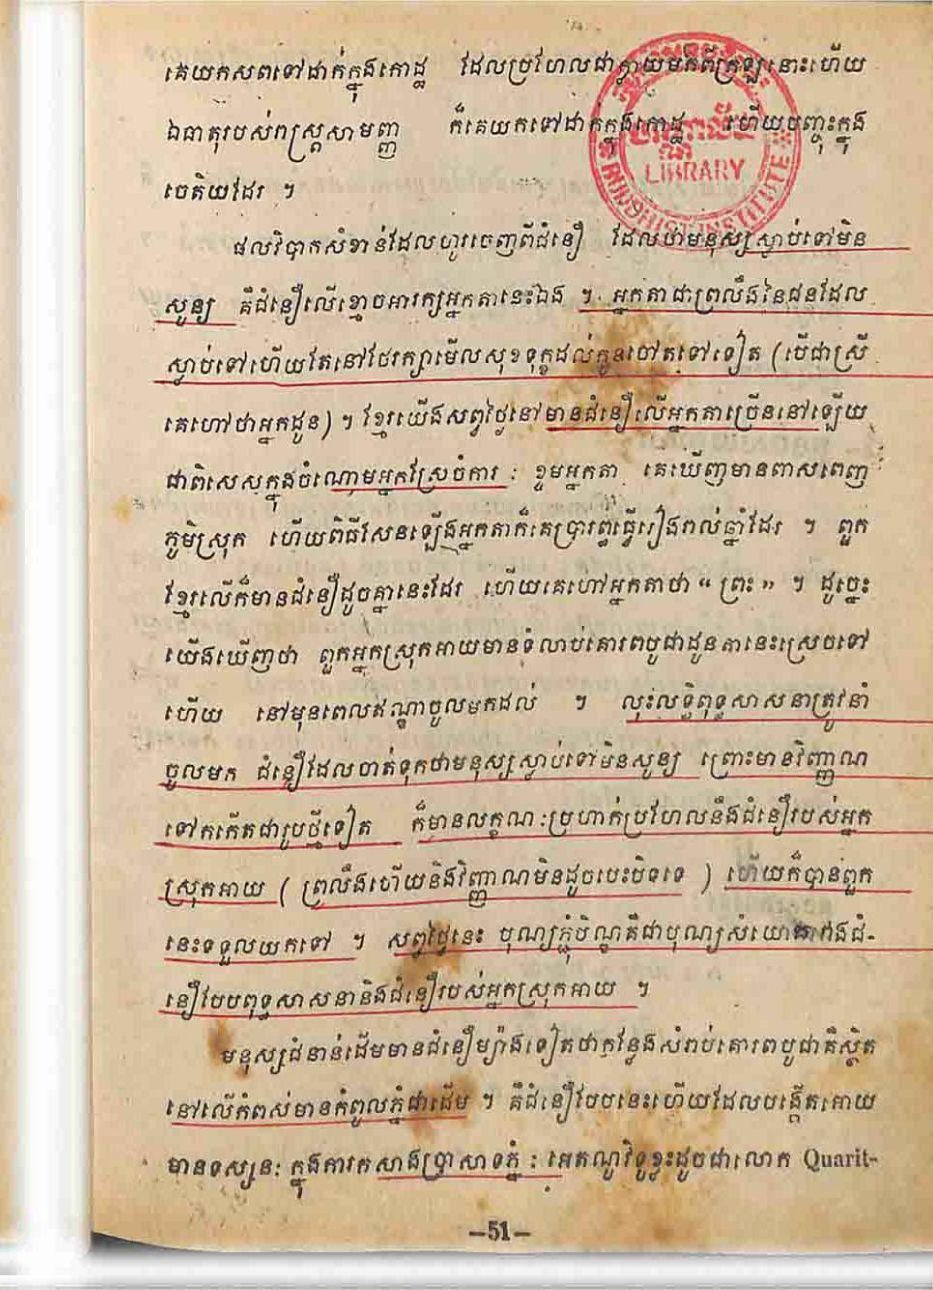 គេយកសពទៅដាក់ក្នុងកោដ្ឋ ដែលប្រហែលជាក្លាយមកពីក្រឡនោះហើយ
ឯធាតុរបស់រាស្ត្រសាមញ្ញ ក៏គេយកទៅដាក់ក្នុងកោដ្ឋ ហើយបញ្ចុះក្នុង
ចេតិយដែរ ។
LIBRARY
BUDDHIST INSTITUTE
ផលវិបាកសំខាន់ដែលហូរចេញពីជំនឿ ដែលថាមនុស្សស្លាប់ទៅមិន
សូន្យ គឺជំនឿលើខ្មោចអារក្សអ្នកតានេះឯង ។ អ្នកតាជាព្រលឹងនៃជនដែល
ស្លាប់ទៅហើយតែនៅថែរក្សាមើលសុខទុក្ខដល់កូនចៅតទៅទៀត (បើជាស្រី
គេហៅថាអ្នកដូន) ។ ខ្មែរយើងសព្វថ្ងៃនៅមានជំនឿលើអ្នកតាច្រើននៅឡើយ
ជាពិសេសក្នុងចំណោមអ្នកស្រែចំការ : ខ្ទមអ្នកតា គេឃើញមានពាសពេញ
ភូមិស្រុក ហើយពិធីសែនឡើងអ្នកតាក៏គេប្រារព្ធធ្វើរៀងរាល់ឆ្នាំដែរ ។ ពួក
ខ្មែរលើក៏មានជំនឿដូចគ្នានេះដែរ ហើយគេហៅអ្នកតាថា “ ព្រះ » ។ ដូច្នេះ
យើងឃើញថា ពួកអ្នកស្រុកអាយមានទំលាប់គោរពបូជាដូនតានេះស្រេចទៅ
ហើយ នៅមុនពេលឥណ្ឌាចូលមកដល់ ។ លុះលទ្ធិពុទ្ធសាសនាត្រូវនាំ
ចូលមក ជំនឿដែលចាត់ទុកថាមនុស្សស្លាប់ទៅមិនសូន្យ ព្រោះមានវិញ្ញាណ
ទៅកកើតជារូបថ្មីទៀត ក៏មានលក្ខណៈប្រហាក់ប្រហែលនឹងជំនឿរបស់អ្នក
ស្រុកអាយ ( ព្រលឹងហើយនិងវិញ្ញាណមិនដូចបេះបិទទេ ) ហើយក៏បានពួក
នេះទទួលយកទៅ ។ សព្វថ្ងៃនេះ បុណ្យភ្ជុំបិណ្ឌគឺជាបុណ្យសំយោគរវាងជំ-
នឿបែបពុទ្ធសាសនានិងជំនឿរបស់អ្នកស្រុកអាយ ។
មនុស្សជំនាន់ដើមមានជំនឿម្យ៉ាងទៀតថាកន្លែងសំរាប់គោរពបូជាគឺស្ថិត
នៅលើកំពស់មានកំពូលភ្នំជាដើម ។ គឺជំនឿបែបនេះហើយដែលបង្កើតអោយ
មានទស្សនៈ ក្នុងការកសាងប្រាសាទភ្នំ : អេតណូវិទូខ្លះដូចជាលោក Quarit-
–51–